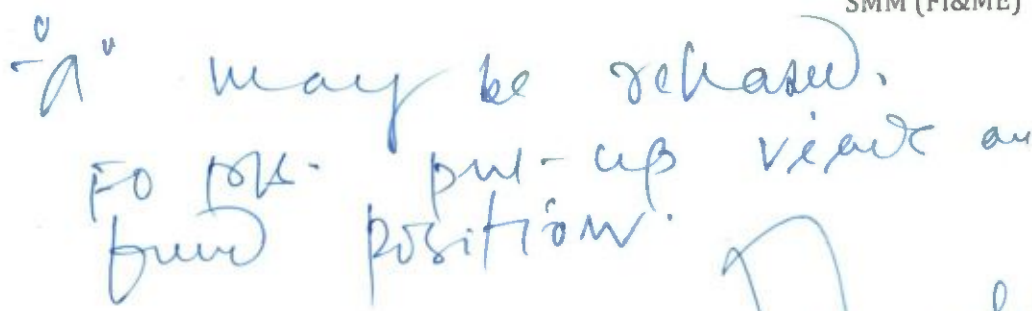 SMM (FI&ME)
"A" may be released.
FO pse. put-up views on
fund position.